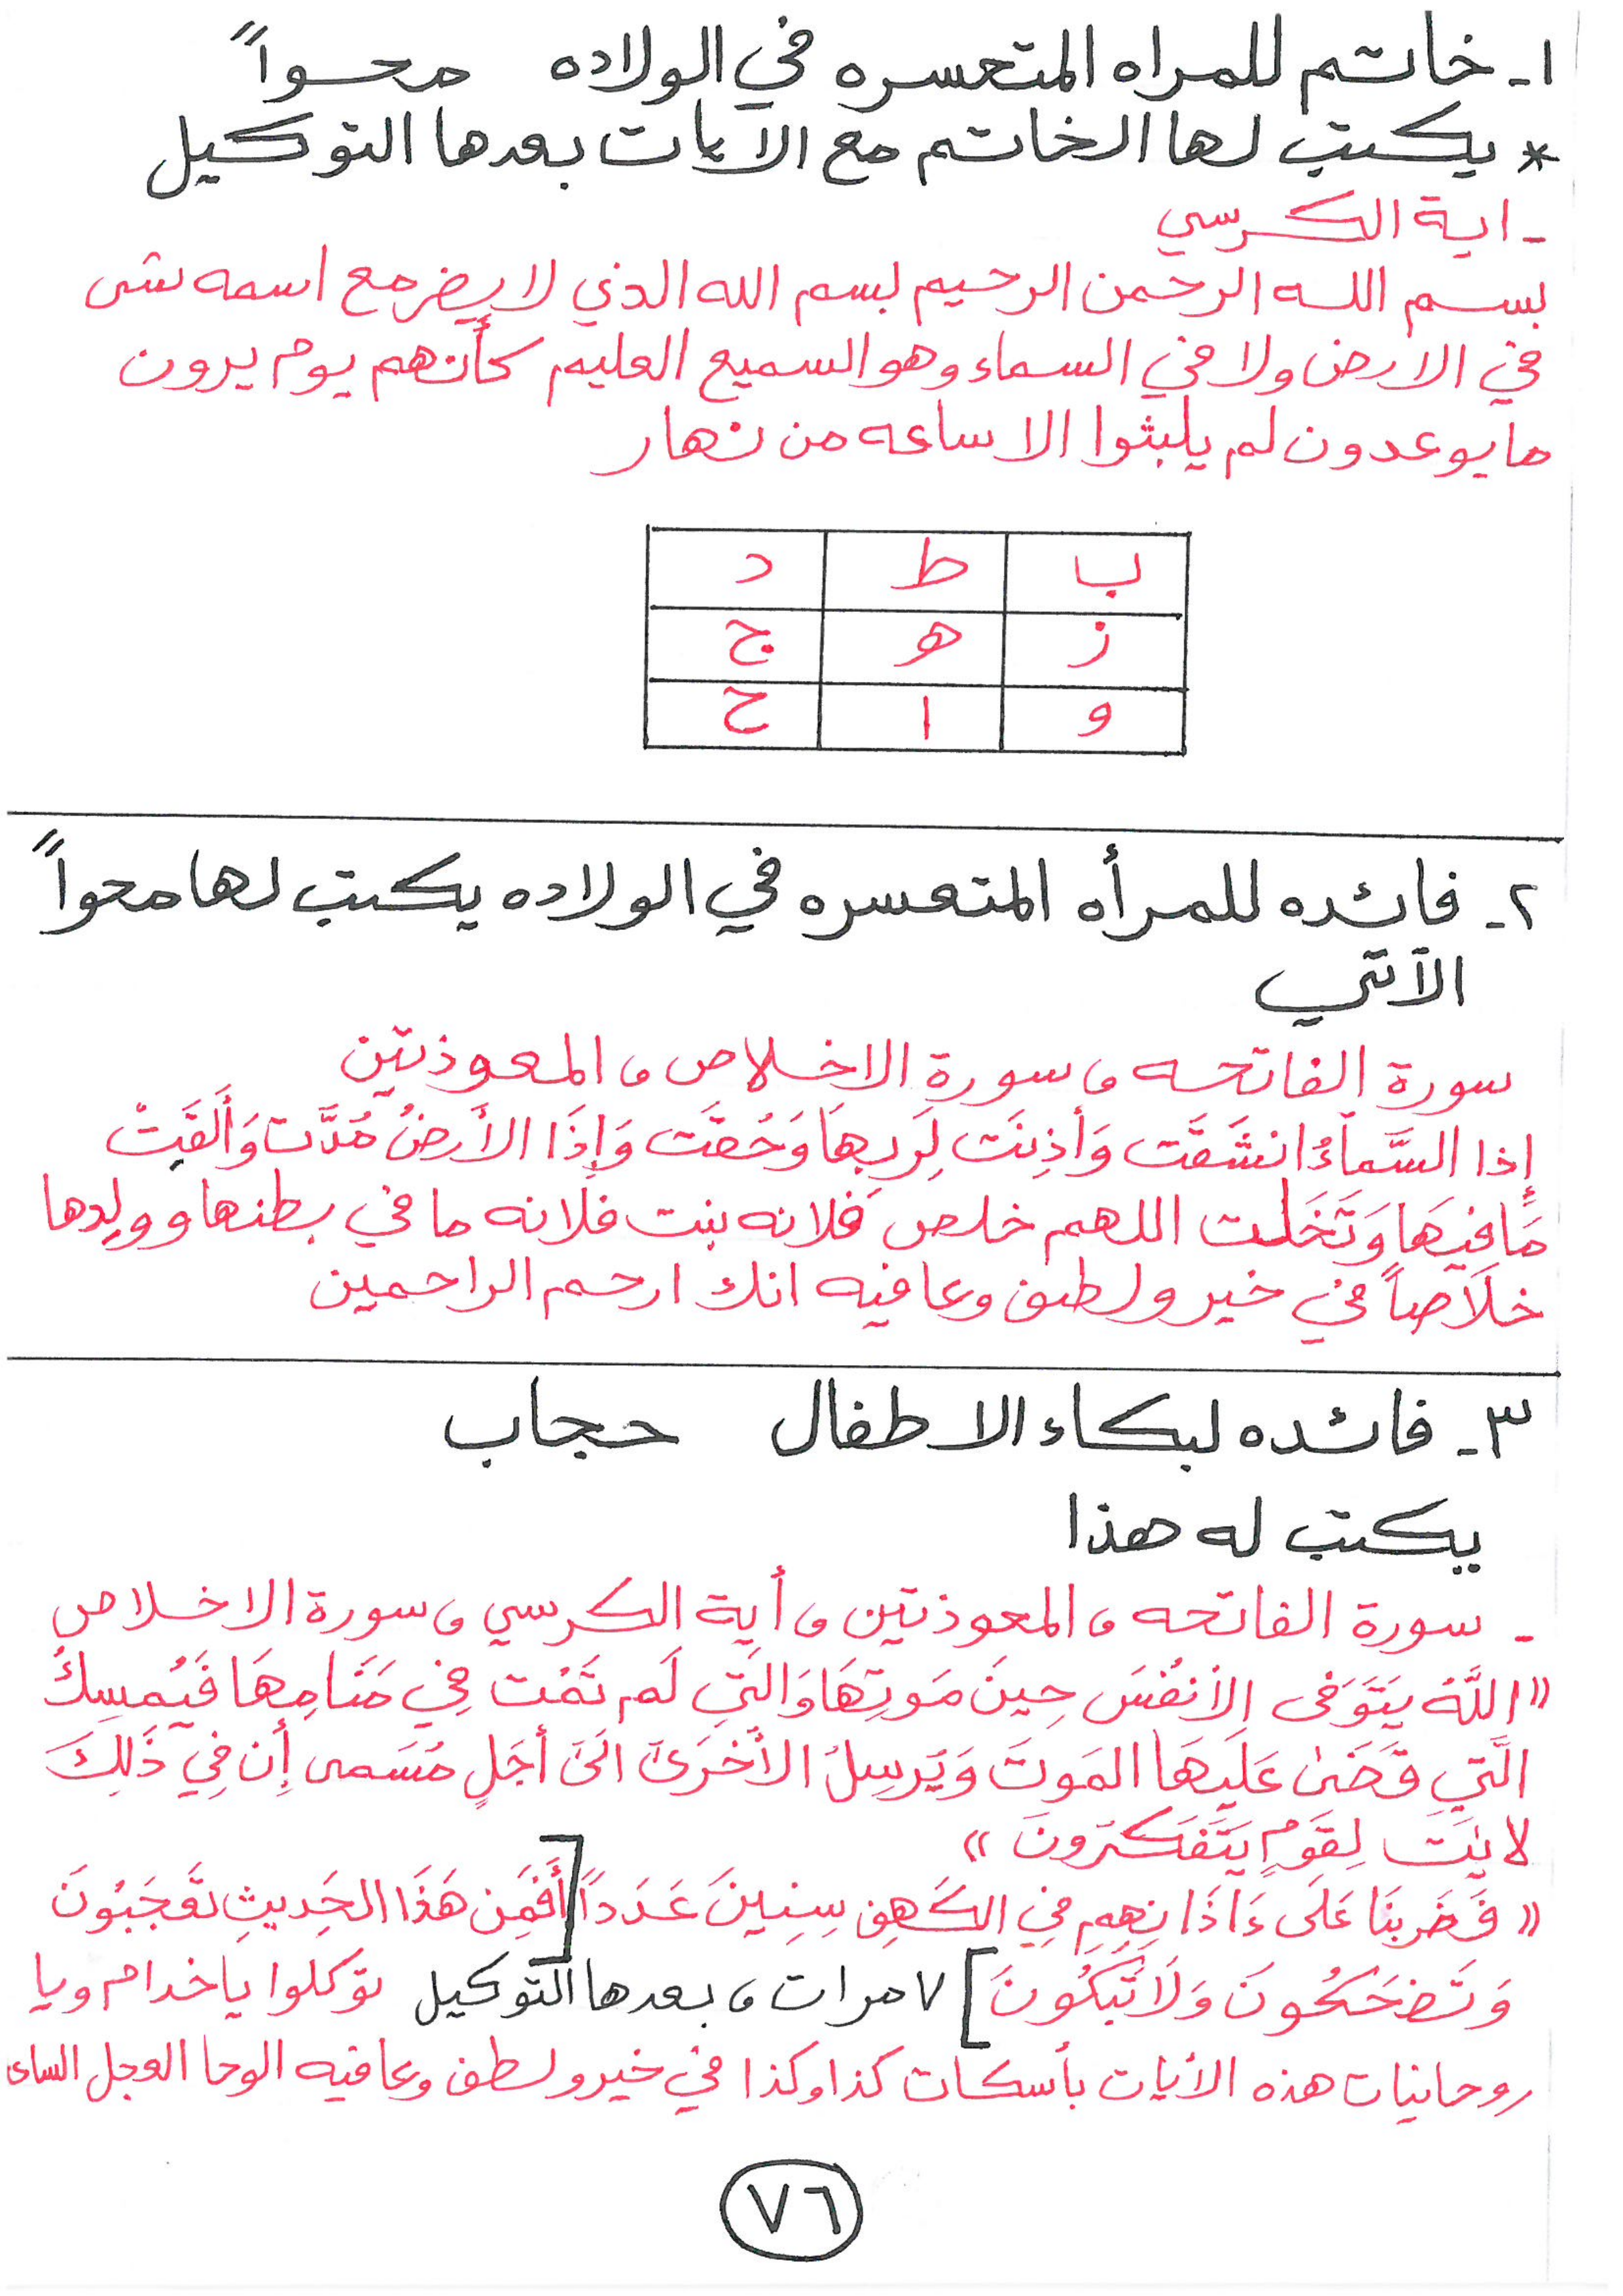 ١- خاتم للمراه المتعسره في الولاده محواً
* يكتب لها الخاتم مع الآيات بعدها التوكيل
- اية الكرسي
بسم الله الرحمن الرحيم بسم الله الذي لا يضر مع اسمه شى
في الارض ولا في السماء وهو السميع العليم كأنهم يوم يرون
ما يوعدون لم يلبثوا الا ساعه من نهار
ب ط د
ز ه ج
و ا ح
٢- فائده للمرأه المتعسره في الولاده يكتب لها محواً
الآتي
سورة الفاتحه و سورة الاخلاص و المعوذتين
إذا السَّماءُ انشَقَت وَأذِنَت لِرَبِهَا وَحُقَت وَإِذَا الأَرضُ مُدَّت وَأَلقَتْ
مَا فِيهَا وَتَخَلت اللهم خلص فلانه بنت فلانه ما في بطنها وولدها
خلاصاً في خير ولطف وعافيه انك ارحم الراحمين
٣- فائده لبكاء الاطفال حجاب
يكتب له هذا
- سورة الفاتحه و المعوذتين و أية الكرسي و سورة الاخلاص
"اللَّهُ يَتَوَفى الأنفُسَ حِينَ مَوتِهَا وَالتِي لَم تَمُت فِي مَنَامِهَا فَيُمسِكُ
الَّتِي قَضَىٰ عَلَيهَا المَوتَ وَيُرسِلُ الأُخرَىٰ الَىٰ أجَلٍ مُسَمى إن فِي ذَلِكَ
لايَٰت لِقَومٍ يَتَفَكرُونَ"
"فَضَربنَا عَلَى ءَاذَانِهِم فِي الكَهفِ سِنِينَ عَدَداً [أَفَمِن هَذَا الحَدِيثِ تَعجَبُونَ
وَتَضحَكُونَ وَلَا تَبكُونَ] ٧ مرات و بعدها التوكيل توكلوا يا خدام ويا
روحانيات هذه الأيات بأسكات كذا وكذا في خير ولطف وعافيه الوحا العجل الساى
٧٦